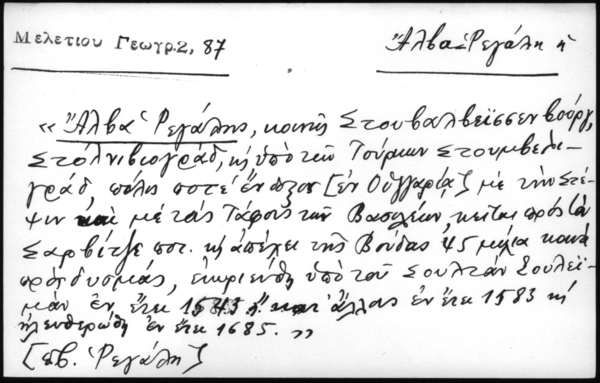 Μελετίου Γεωγρ.2, 87
Ἄλβα Ῥεγάλη ἡ
« Ἄλβα Ῥεγάλης, κοινῶς Στουβαλβεϊσσενβούργ,
Στόλνιβιογράδ, κὴ ὑπὸ τῶν Τούρκων Στουμβελι-
γράδ, πόλις ποτὲ ἔνδοξος [ἐν Οὐγγαρίᾳ] μὲ τὴν Στέ-
ψιν καὶ μὲ τοὺς Τάφους τῶν Βασιλέων, κεῖται πρὸς τὸν
Σαρβίτζε ποτ. κὴ ἀπέχει τῆς Βούδας 45 μίλια κατὰ
πρὸς δυσμάς, ἐκυριεύθη ὑπὸ τοῦ Σουλτὰν Σουλεϊ-
μὰν ἐν ἔτει 1543 ἢ κατ' ἄλλους ἐν ἔτει 1583 κὴ
ἠλευθερώθη ἐν ἔτει 1685. »
[σβ. Ῥεγάλη]